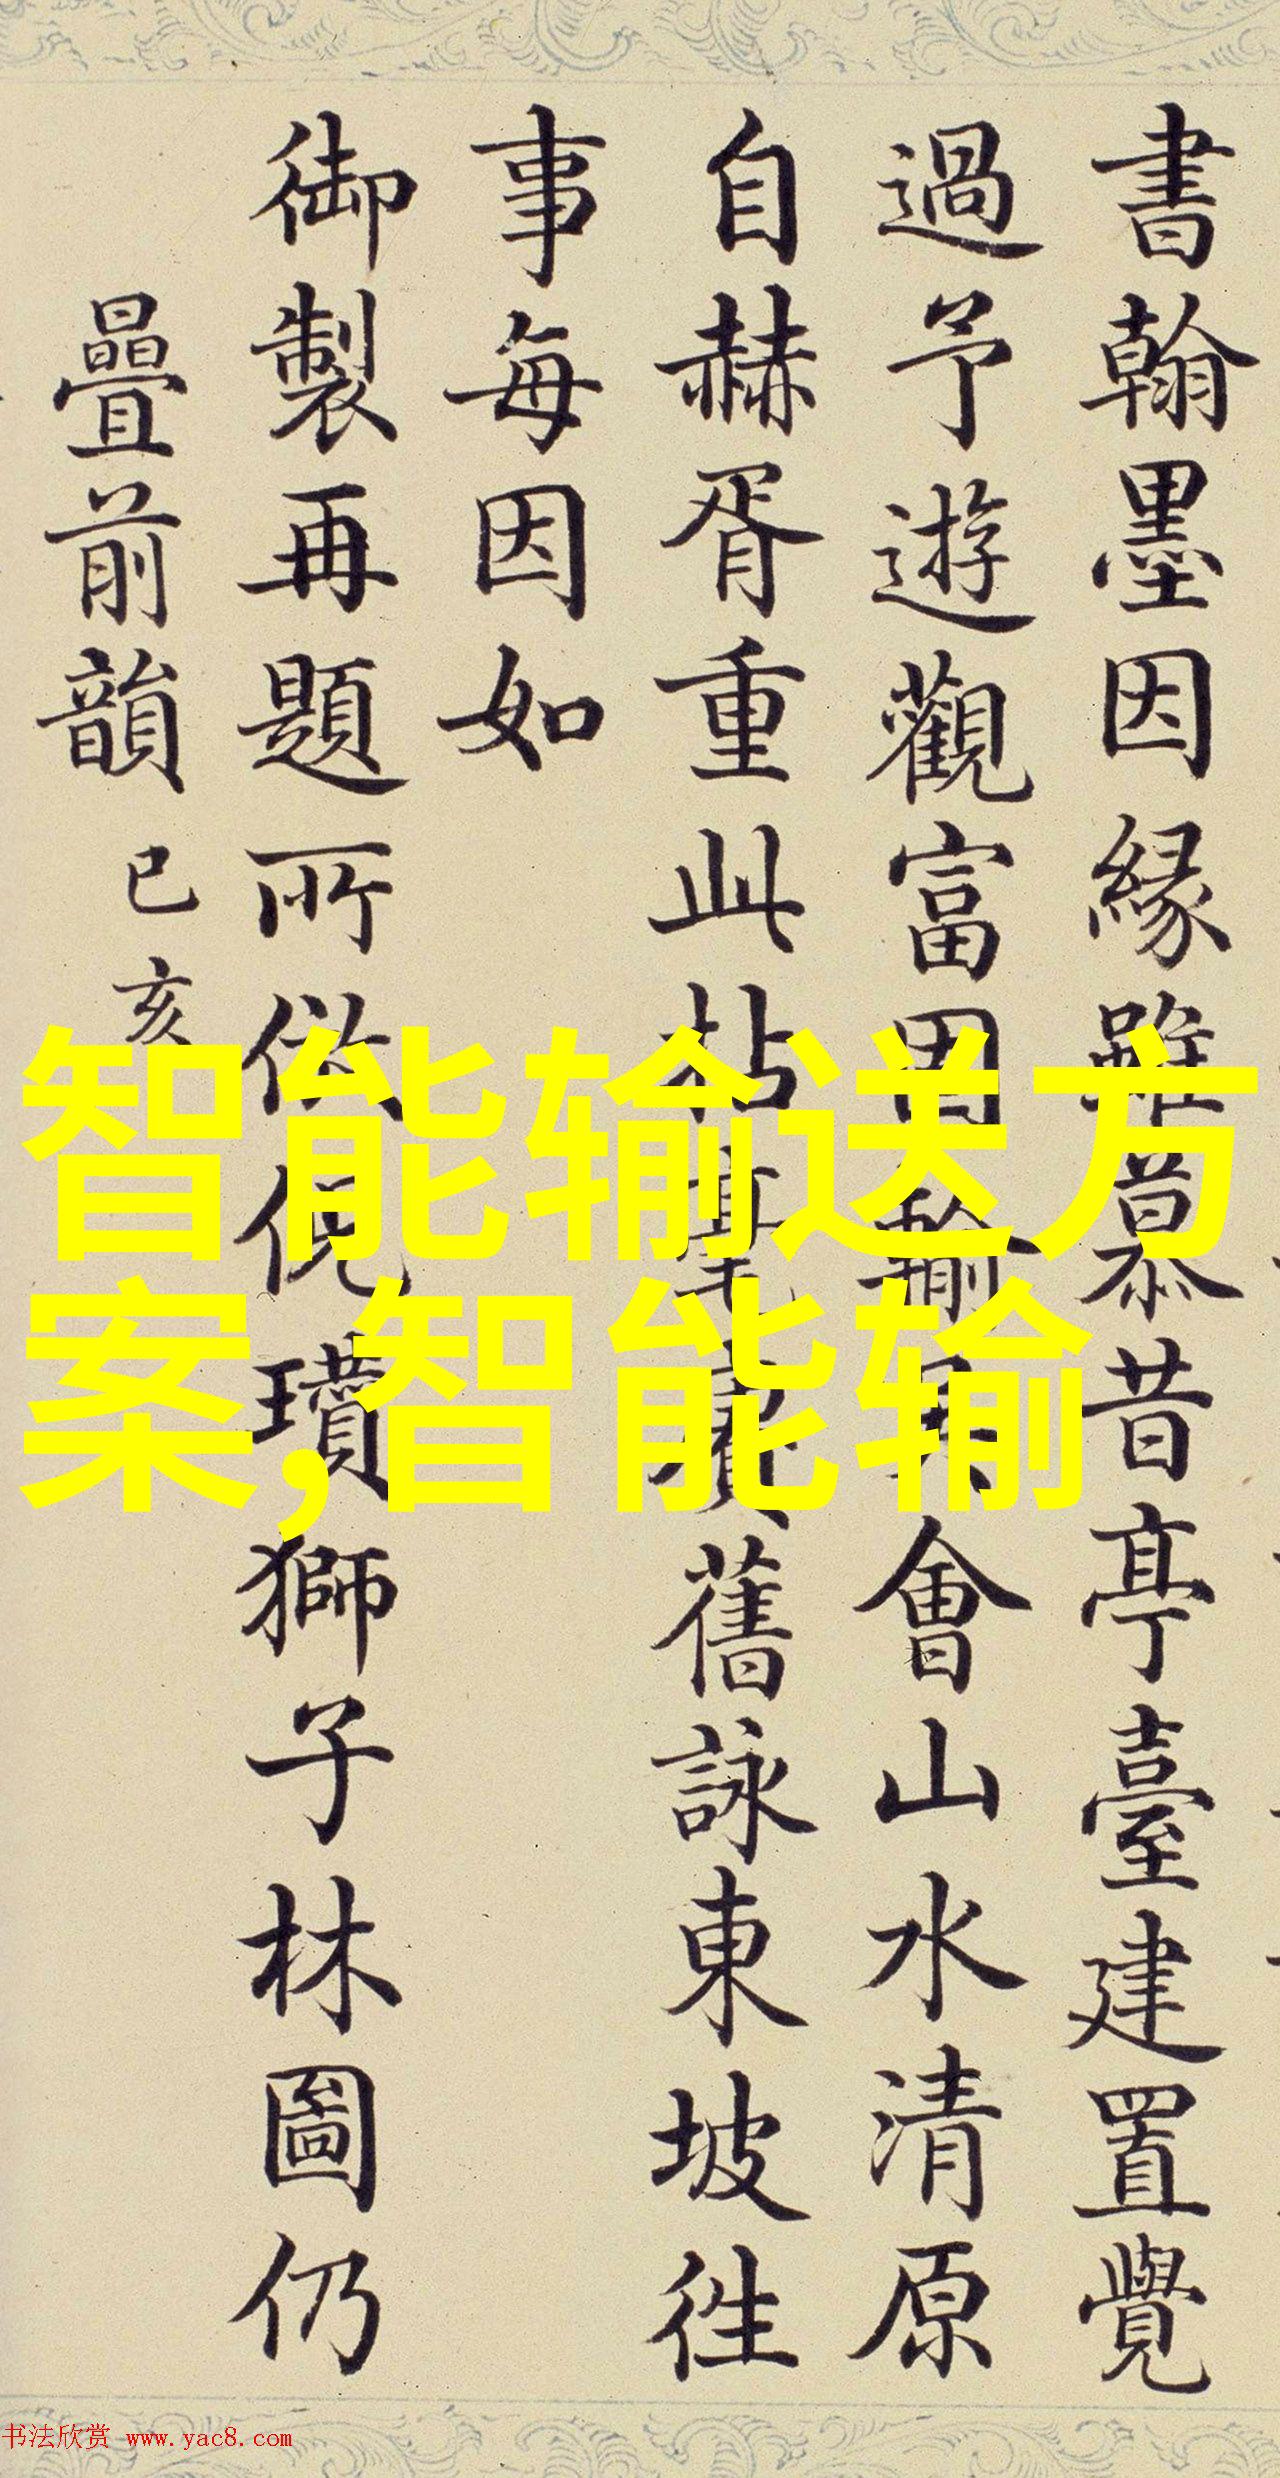 書翰墨因緣雖慕昔亭臺建置覺
過予遊觀富輸會山水清原
自赫胥重此拈毫賡舊詠東坡往
事每因如
御製再題所供倪瓚獅子林圖仍
疊前韻 己亥
智能输送方
案,智能输
书法欣赏 www.yac8.com